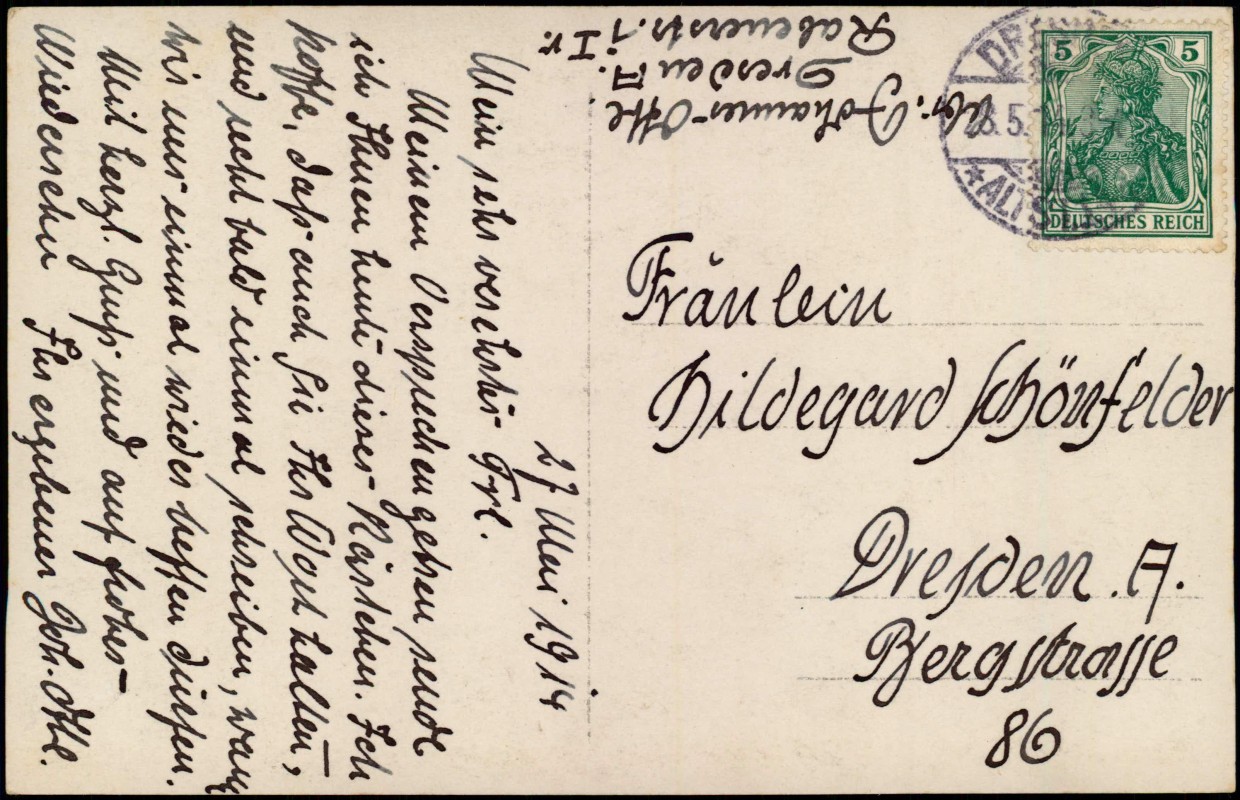 27 Mai 1914
Mein sehr verehrtes Frl.
Meinem Versprechen getreu sende
ich Ihnen heute dieses Kärtchen. Ich
hoffe, daß auch Sie Ihr Wort halten,
und recht bald einmal schreiben, wann
wir uns einmal wieder treffen dürfen.
Mit herzl. Gruß und auf frohes
Wiedersehn Ihr ergebener Joh. Otte.
Abs.: Johannes Otte.
Dresden A.
Rabenerstr. 1 Ir.
DRESDEN
28.5.
*ALTST
5 5
DEUTSCHES REICH
Fräulein
Hildegard Schönfelder
Dresden. A.
Bergstrasse
86